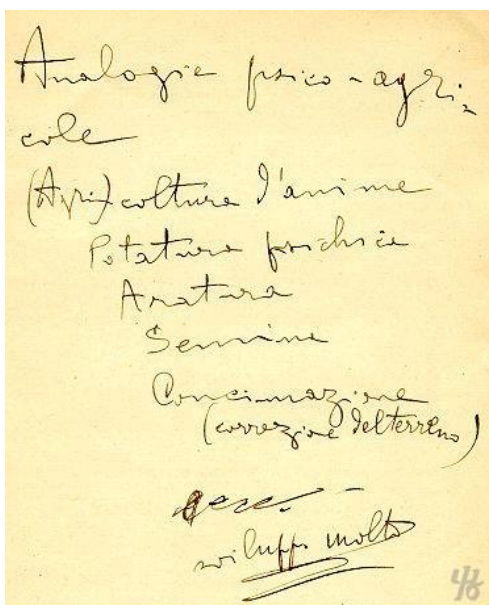 Analogie psico-agri-
cole
(Agri)coltura d'anime
Potatura psichica
Aratura
Semina
Concimazione
(correzione del terreno)
ecc.
sviluppo molto
46